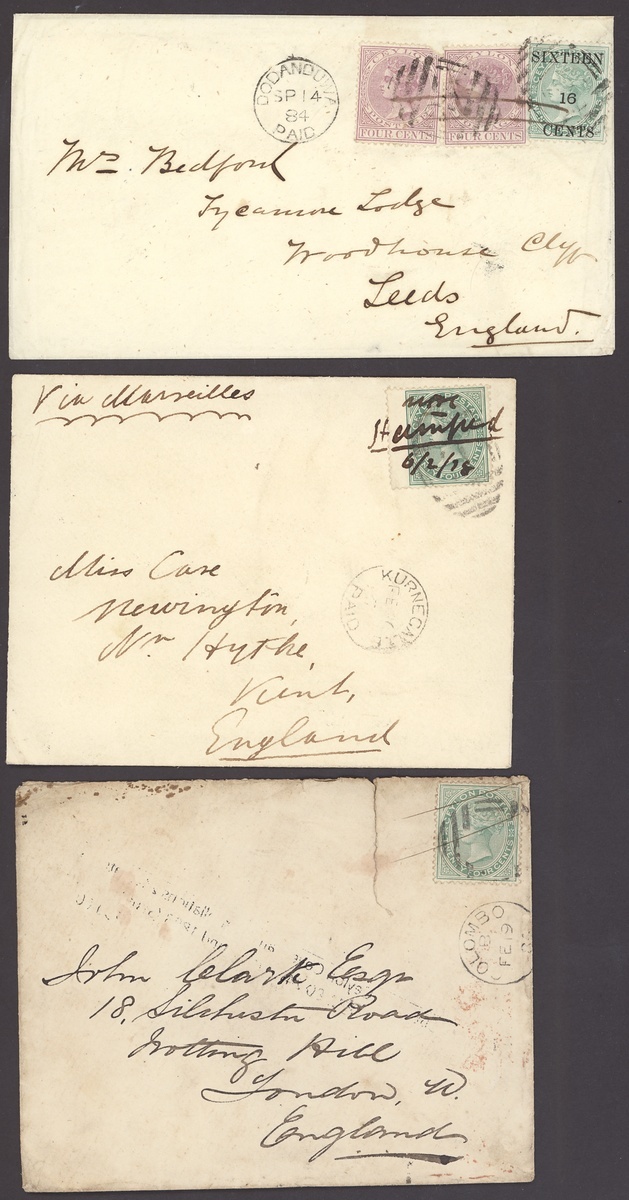 DODANDUWA
SP 14
84
PAID
CEYLON
POSTAGE
FOUR CENTS
CEYLON
POSTAGE
FOUR CENTS
SIXTEEN
16
CENTS
Mrs Bedford
Sycamore Lodge
Woodhouse Clyff
Leeds
England.
Via Marseilles
Stamped
6/2/78
Miss Case
Newington,
Nr Hythe,
Kent,
England
KURNEGALLE
FE
PAID
CEYLON POSTAGE
FOUR CENTS
COLOMBO
FE 19
John Clark Esqr
18, Silchester Road
Notting Hill
London, W.
England